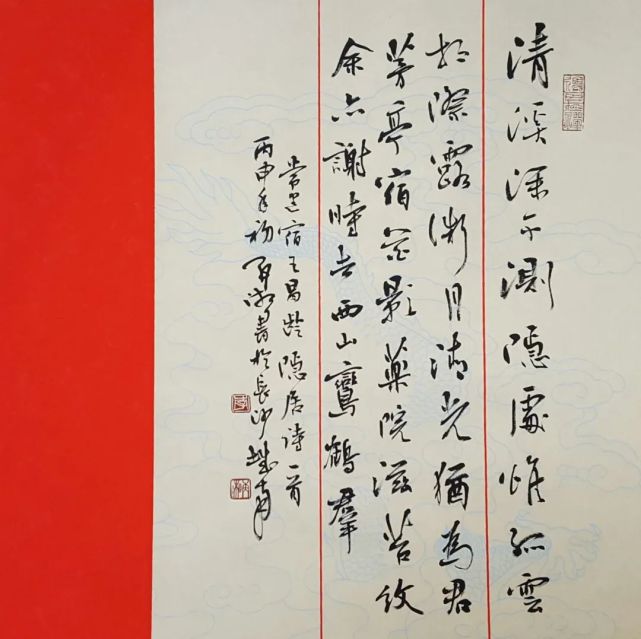 清溪深不測隐處惟孤雲
松際露微月清光猶為君
茅亭宿花影藥院滋苔紋
余亦謝時去西山鸞鶴羣
常建宿王昌齡隐居诗一首
丙申年初書於長沙城南